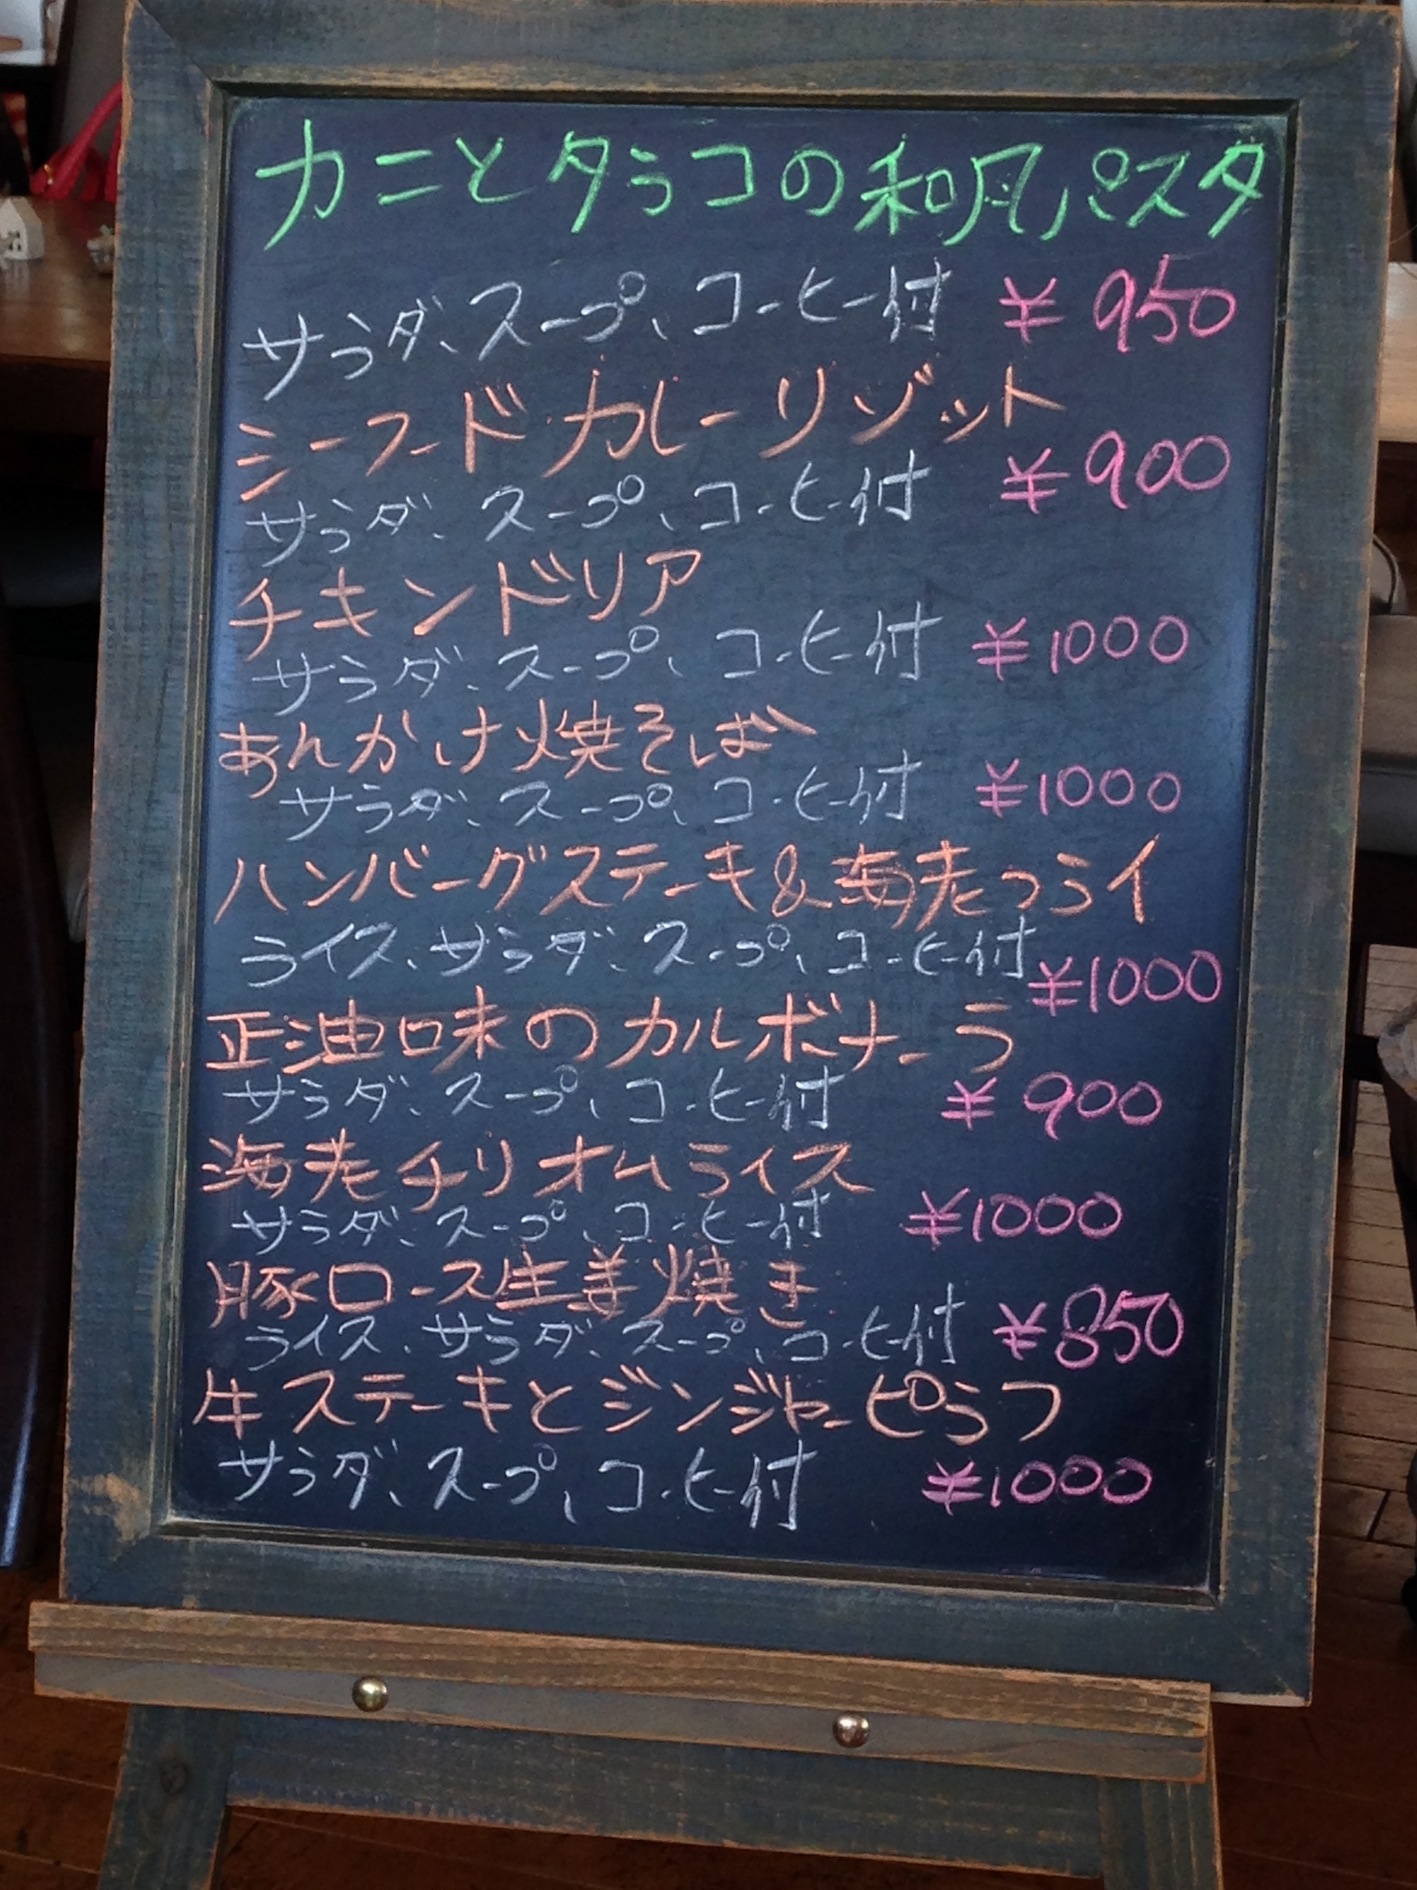 カニとタラコの和風パスタ
サラダ、スープ、コーヒー付 ¥950
シーフードカレーリゾット
サラダ、スープ、コーヒー付 ¥900
チキンドリア
サラダ、スープ、コーヒー付 ¥1000
あんかけ焼そば
サラダ、スープ、コーヒー付 ¥1000
ハンバーグステーキ&海老フライ
ライス、サラダ、スープ、コーヒー付 ¥1000
正油味のカルボナーラ
サラダ、スープ、コーヒー付 ¥900
海老チリオムライス
サラダ、スープ、コーヒー付 ¥1000
豚ロース生姜焼き
ライス、サラダ、スープ、コーヒー付 ¥850
牛ステーキとジンジャーピラフ
サラダ、スープ、コーヒー付 ¥1000